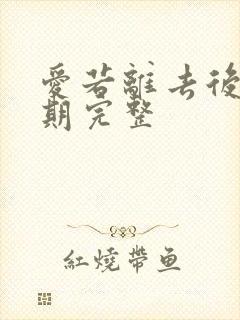 愛若離去後
期完整
紅燒帶鱼